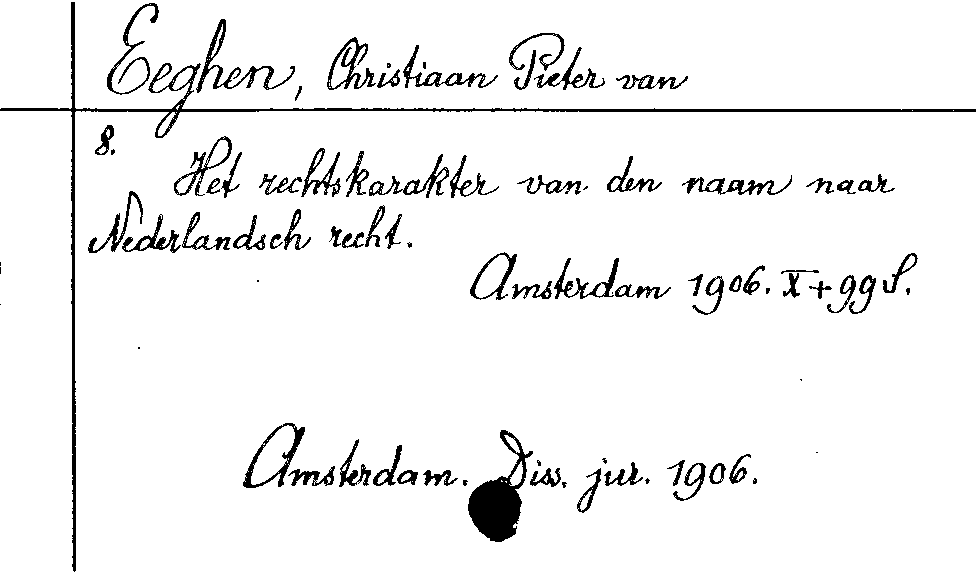 Eeghen, Christiaan Pieter van
8.
Het rechtskarakter van den naam naar
Nederlandsch recht.
Amsterdam 1906. X+99 S.
Amsterdam. Diss. jur. 1906.